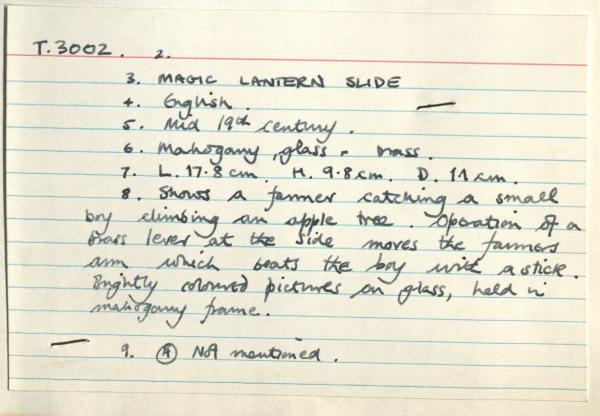 T.3002. 2.
3. MAGIC LANTERN SLIDE
4. English.
5. Mid 19th century.
6. Mahogany, glass. brass.
7. L. 17.8cm. H. 9.8cm. D. 11cm.
8. Shows a farmer catching a small
boy climbing an apple tree. Operation of a
brass lever at the side moves the farmers
arm which beats the boy with a stick.
Brightly coloured pictures on glass, held in
mahogany frame.
9. (A) Not mentioned.